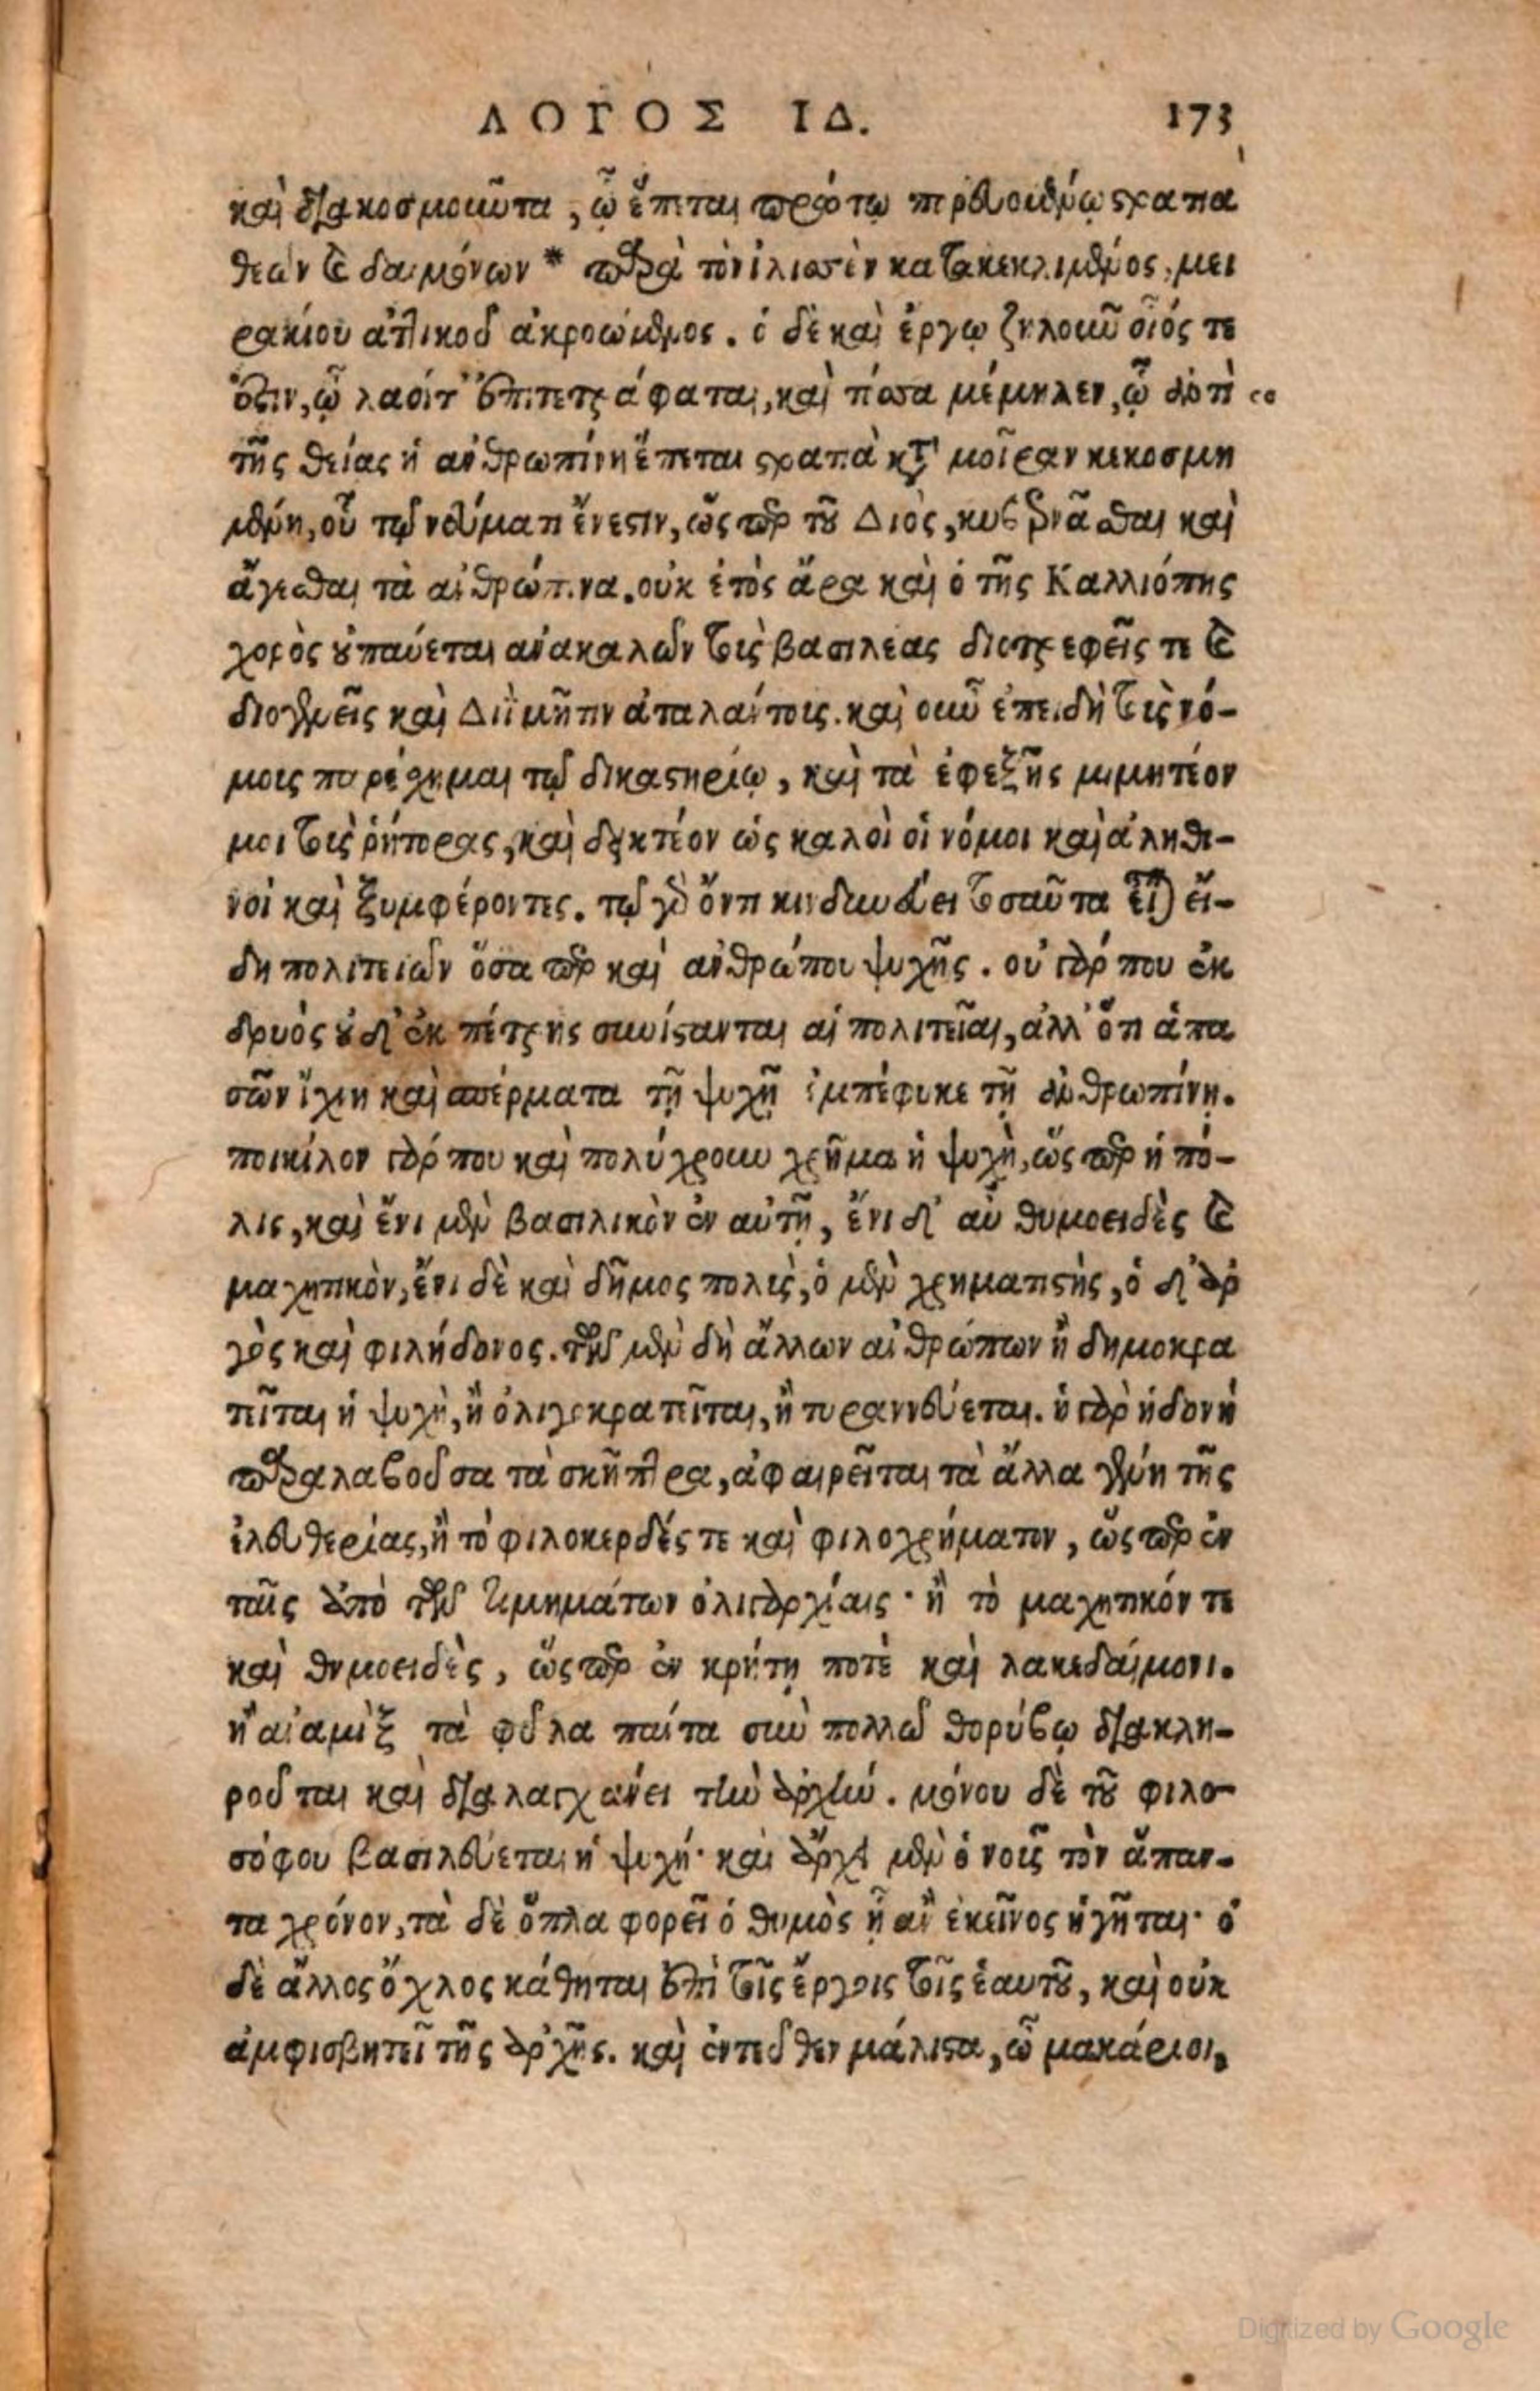 ΛΟΓΟΣ ΙΔ. 173
καὶ διακοσμοῦντα, ᾧ ἕπεται πρώτῳ πορευομένῳ στρατιὰ
θεῶν καὶ δαιμόνων * παρὰ τὸν ἰλισσὸν κατακεκλιμένος, μει
ρακίου ἀττικοῦ ἀκροώμενος. ὁ δὲ καὶ ἔργῳ ζηλοῦν οἷός τε
ὅστιν, ᾧ λαοί τ' ἐπιτετράφαται, καὶ τόσα μέμηλεν, ᾧ διότι
τῆς θείας ἡ ἀνθρωπίνη ἕπεται στρατιὰ κατὰ μοῖραν κεκοσμη
μένη, οὗ τῷ νεύματι ἔνεστιν, ὥσπερ τοῦ Διὸς, κυβερνᾶσθαι καὶ
ἄγεσθαι τὰ ἀνθρώπινα. οὐκ ἐτὸς ἄρα καὶ ὁ τῆς Καλλιόπης
χορὸς οὐ παύεται ἀνακαλῶν τοὺς βασιλέας διοτρεφεῖς τε καὶ
διογενεῖς καὶ Διῒ μῆτιν ἀταλάντους. καὶ οὖν ἐπειδὴ τοὺς νό-
μους παρέσχημαι τῷ δικαστηρίῳ, καὶ τὰ ἐφεξῆς μιμητέον
μοι τοὺς ῥήτορας, καὶ δεικτέον ὡς καλοὶ οἱ νόμοι καὶ ἀληθι-
νοὶ καὶ ξυμφέροντες. τῷ γὰρ ὄντι κινδυνεύει τοσαῦτα εἶναι εἴ-
δη πολιτειῶν ὅσα περ καὶ ἀνθρώπου ψυχῆς. οὐ γάρ που ἐκ
δρυὸς οὐδ' ἐκ πέτρης συνίστανται αἱ πολιτεῖαι, ἀλλ' ὅτι ἁπα
σῶν ἴχνη καὶ σπέρματα τῇ ψυχῇ ἐμπέφυκε τῇ ἀνθρωπίνῃ.
ποικίλον γάρ που καὶ πολύχρουν χρῆμα ἡ ψυχὴ, ὥσπερ ἡ πό-
λις, καὶ ἔνι μὲν βασιλικὸν ἐν αὐτῇ, ἔνι δ' αὖ θυμοειδὲς καὶ
μαχητικὸν, ἔνι δὲ καὶ δῆμος πολὺς, ὁ μὲν χρηματιστὴς, ὁ δ' ἀρ
γὸς καὶ φιλήδονος. τῶν μὲν δὴ ἄλλων ἀνθρώπων ἢ δημοκρα
τεῖται ἡ ψυχὴ, ἢ ὀλιγοκρατεῖται, ἢ τυραννεύεται. ἡ γὰρ ἡδονὴ
παραλαβοῦσα τὰ σκῆπτρα, ἀφαιρεῖται τὰ ἄλλα γένη τῆς
ἐλευθερίας, ἢ τὸ φιλοκερδές τε καὶ φιλοχρήματον, ὥσπερ ἐν
ταῖς ἀπὸ τῶν τιμημάτων ὀλιγαρχίαις· ἢ τὸ μαχητικόν τε
καὶ θυμοειδὲς, ὥσπερ ἐν κρήτῃ ποτὲ καὶ λακεδαίμονι.
ἢ ἀναμὶξ τὰ φῦλα πάντα σὺν πολλῷ θορύβῳ διακλη-
ροῦται καὶ διαλαγχάνει τὴν ἀρχήν. μόνου δὲ τοῦ φιλο-
σόφου βασιλεύεται ἡ ψυχή· καὶ ἄρχει μὲν ὁ νοῦς τὸν ἅπαν-
τα χρόνον, τὰ δὲ ὅπλα φορεῖ ὁ θυμὸς ᾗ ἂν ἐκεῖνος ἡγῆται· ὁ
δὲ ἄλλος ὄχλος κάθηται ἐπὶ τοῖς ἔργοις τοῖς ἑαυτοῦ, καὶ οὐκ
ἀμφισβητεῖ τῆς ἀρχῆς. καὶ ἐντεῦθεν μάλιστα, ὦ μακάριοι,
Digitized by Google